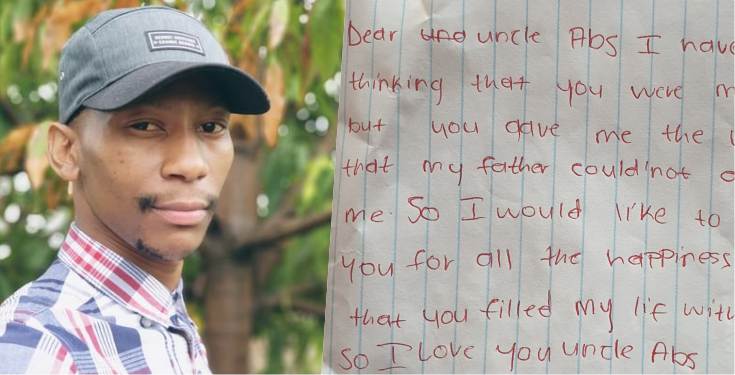 Dear uncle Abs I have
thinking that you were
but you gave me the
that my father could'not
me. So I would like to
you for all the happiness
that you filled my lif with
so I Love you uncle Abs